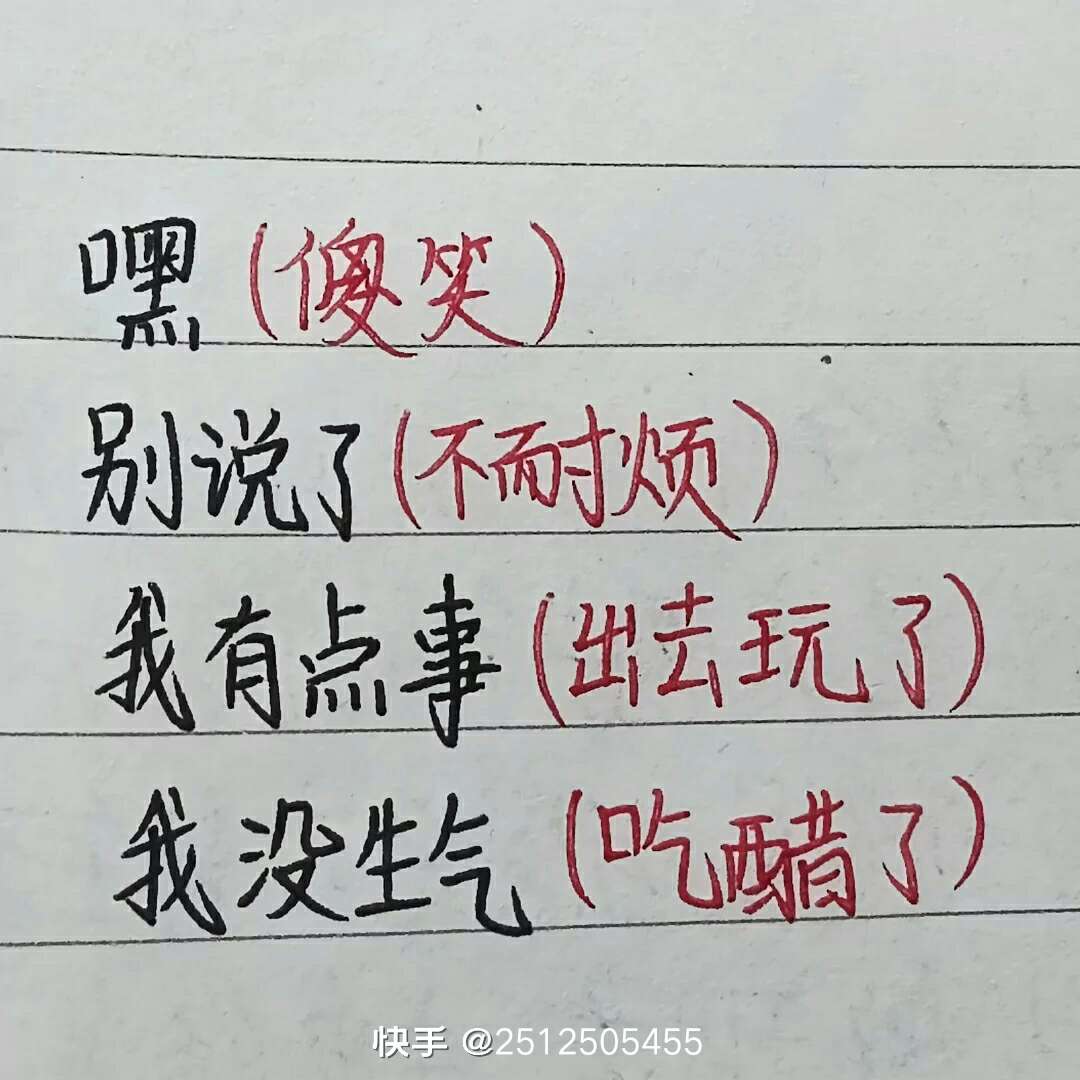 嘿(傻笑)
别说了(不耐烦)
我有点事(出去玩了)
我没生气(吃醋了)
快手 @2512505455